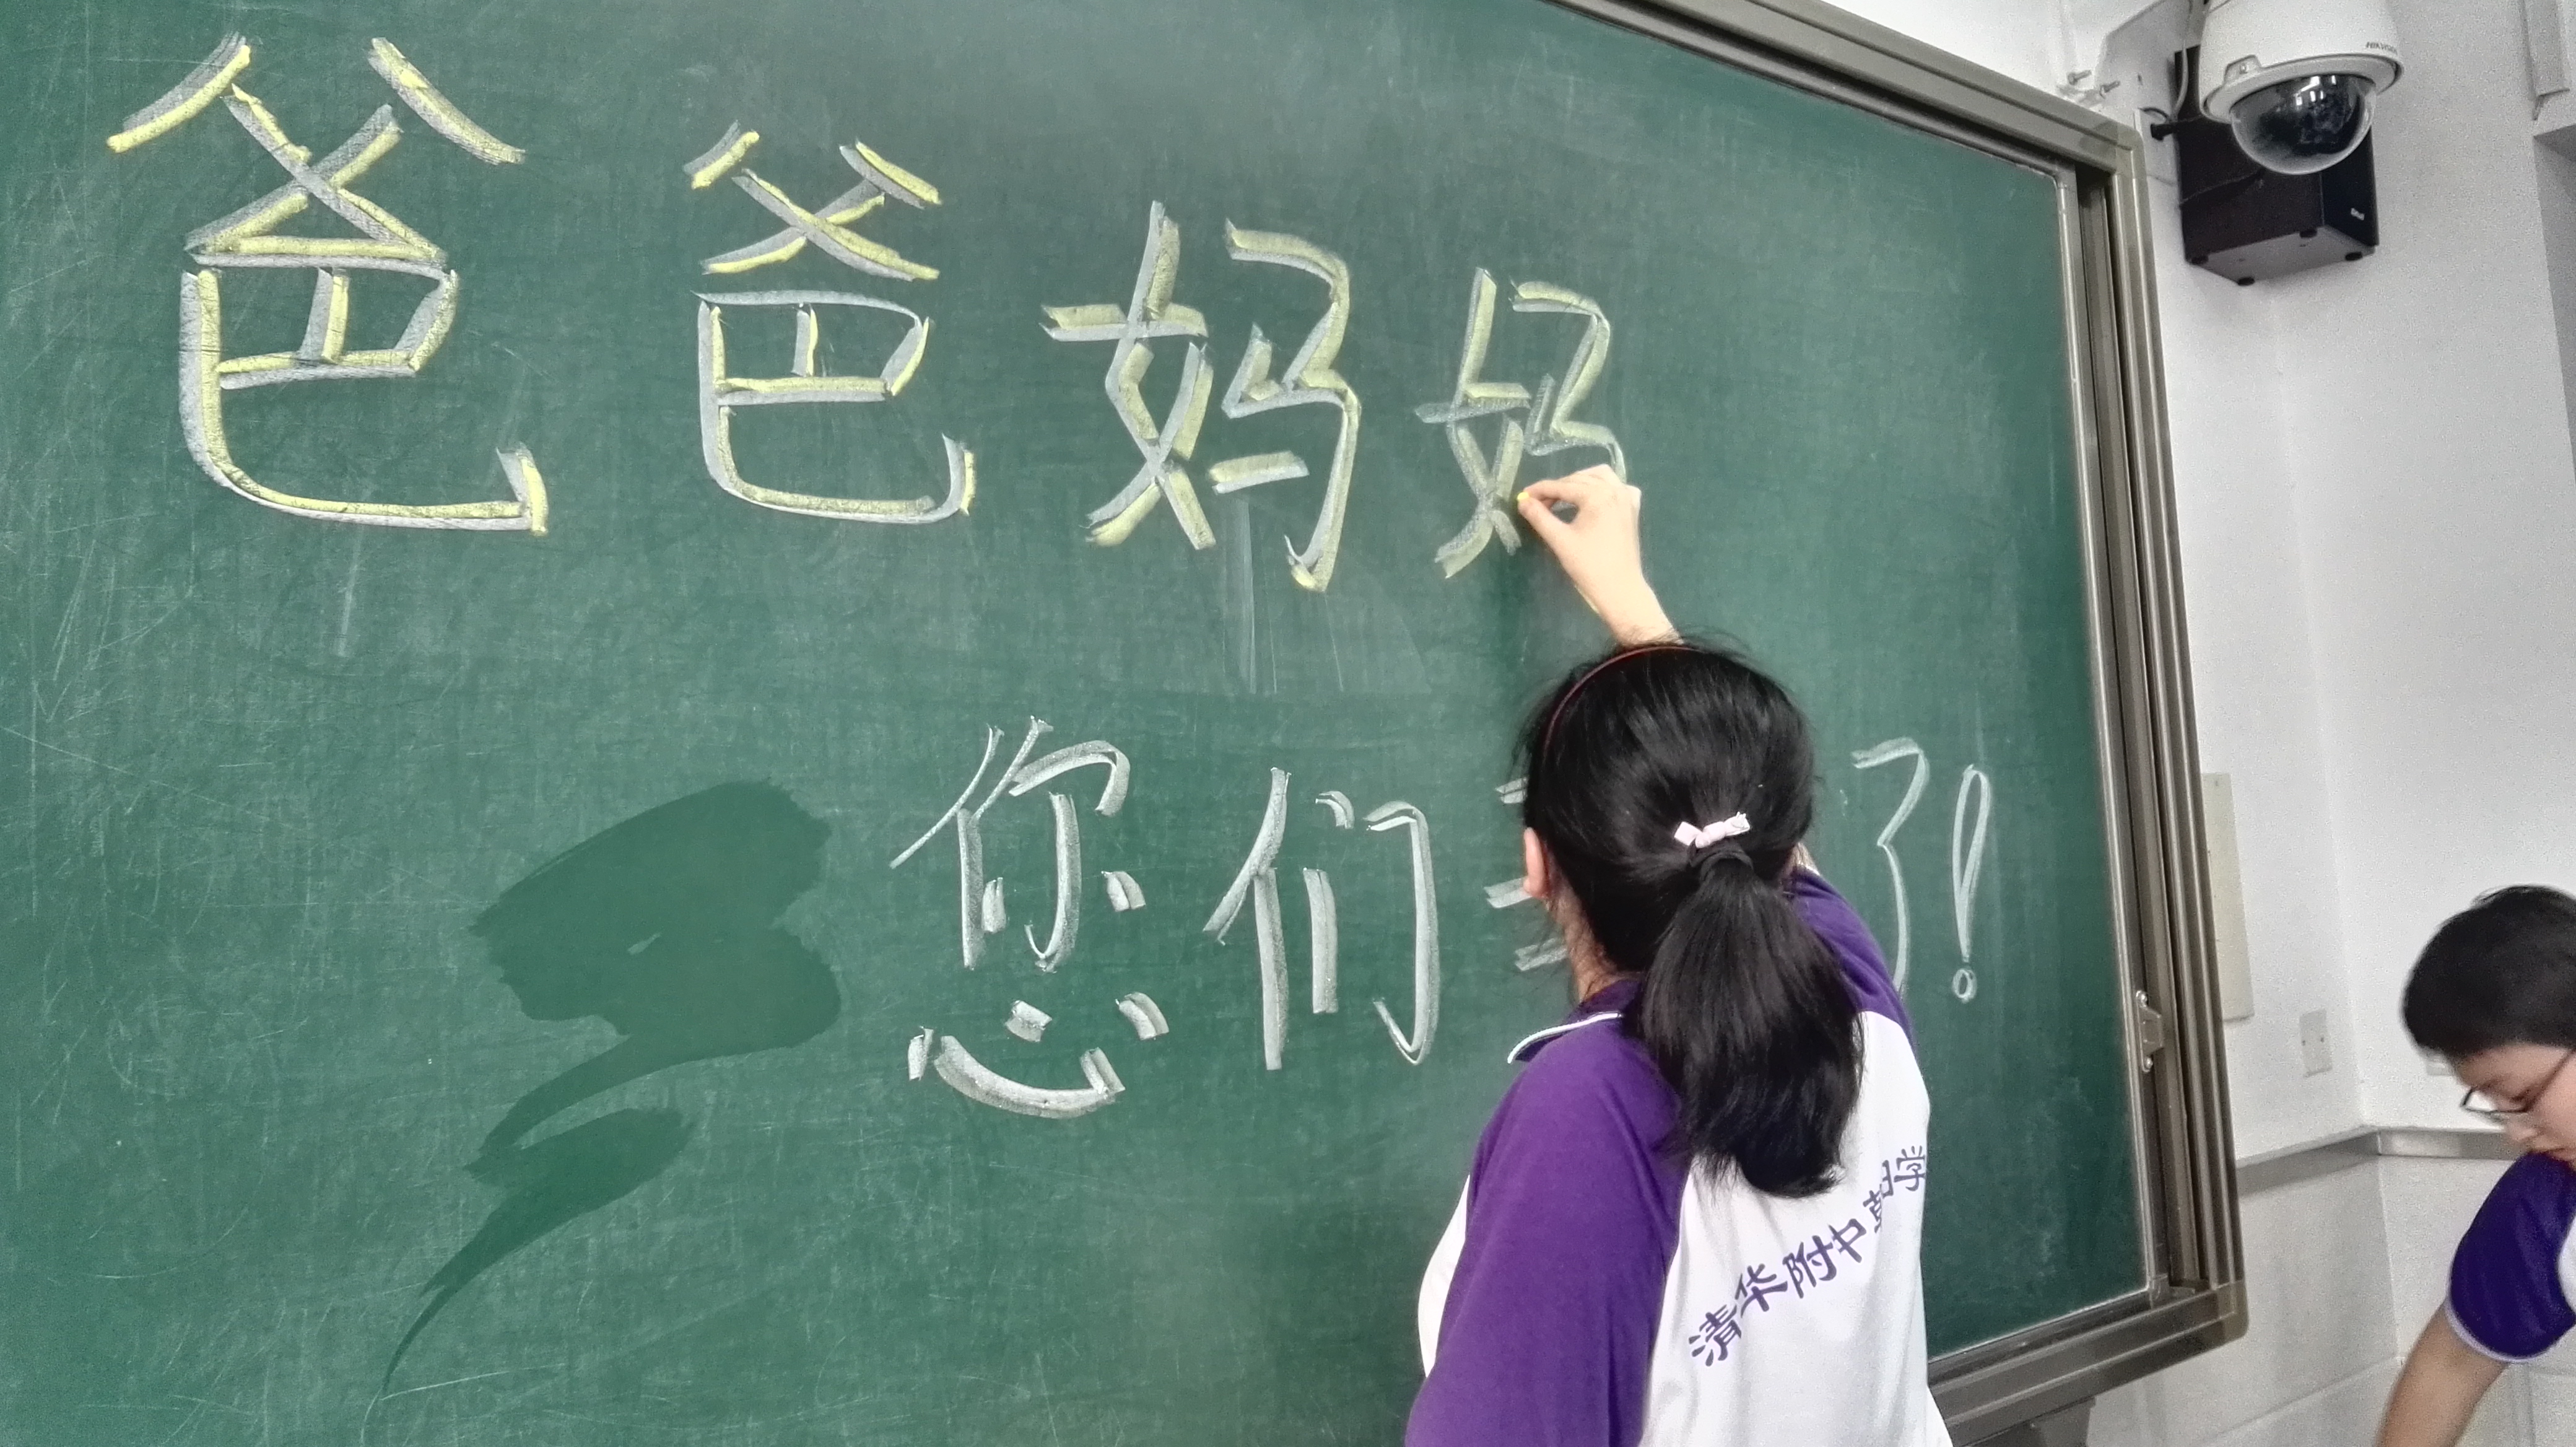 爸爸妈妈
您们 了!
清华附中 学
HIKVISION